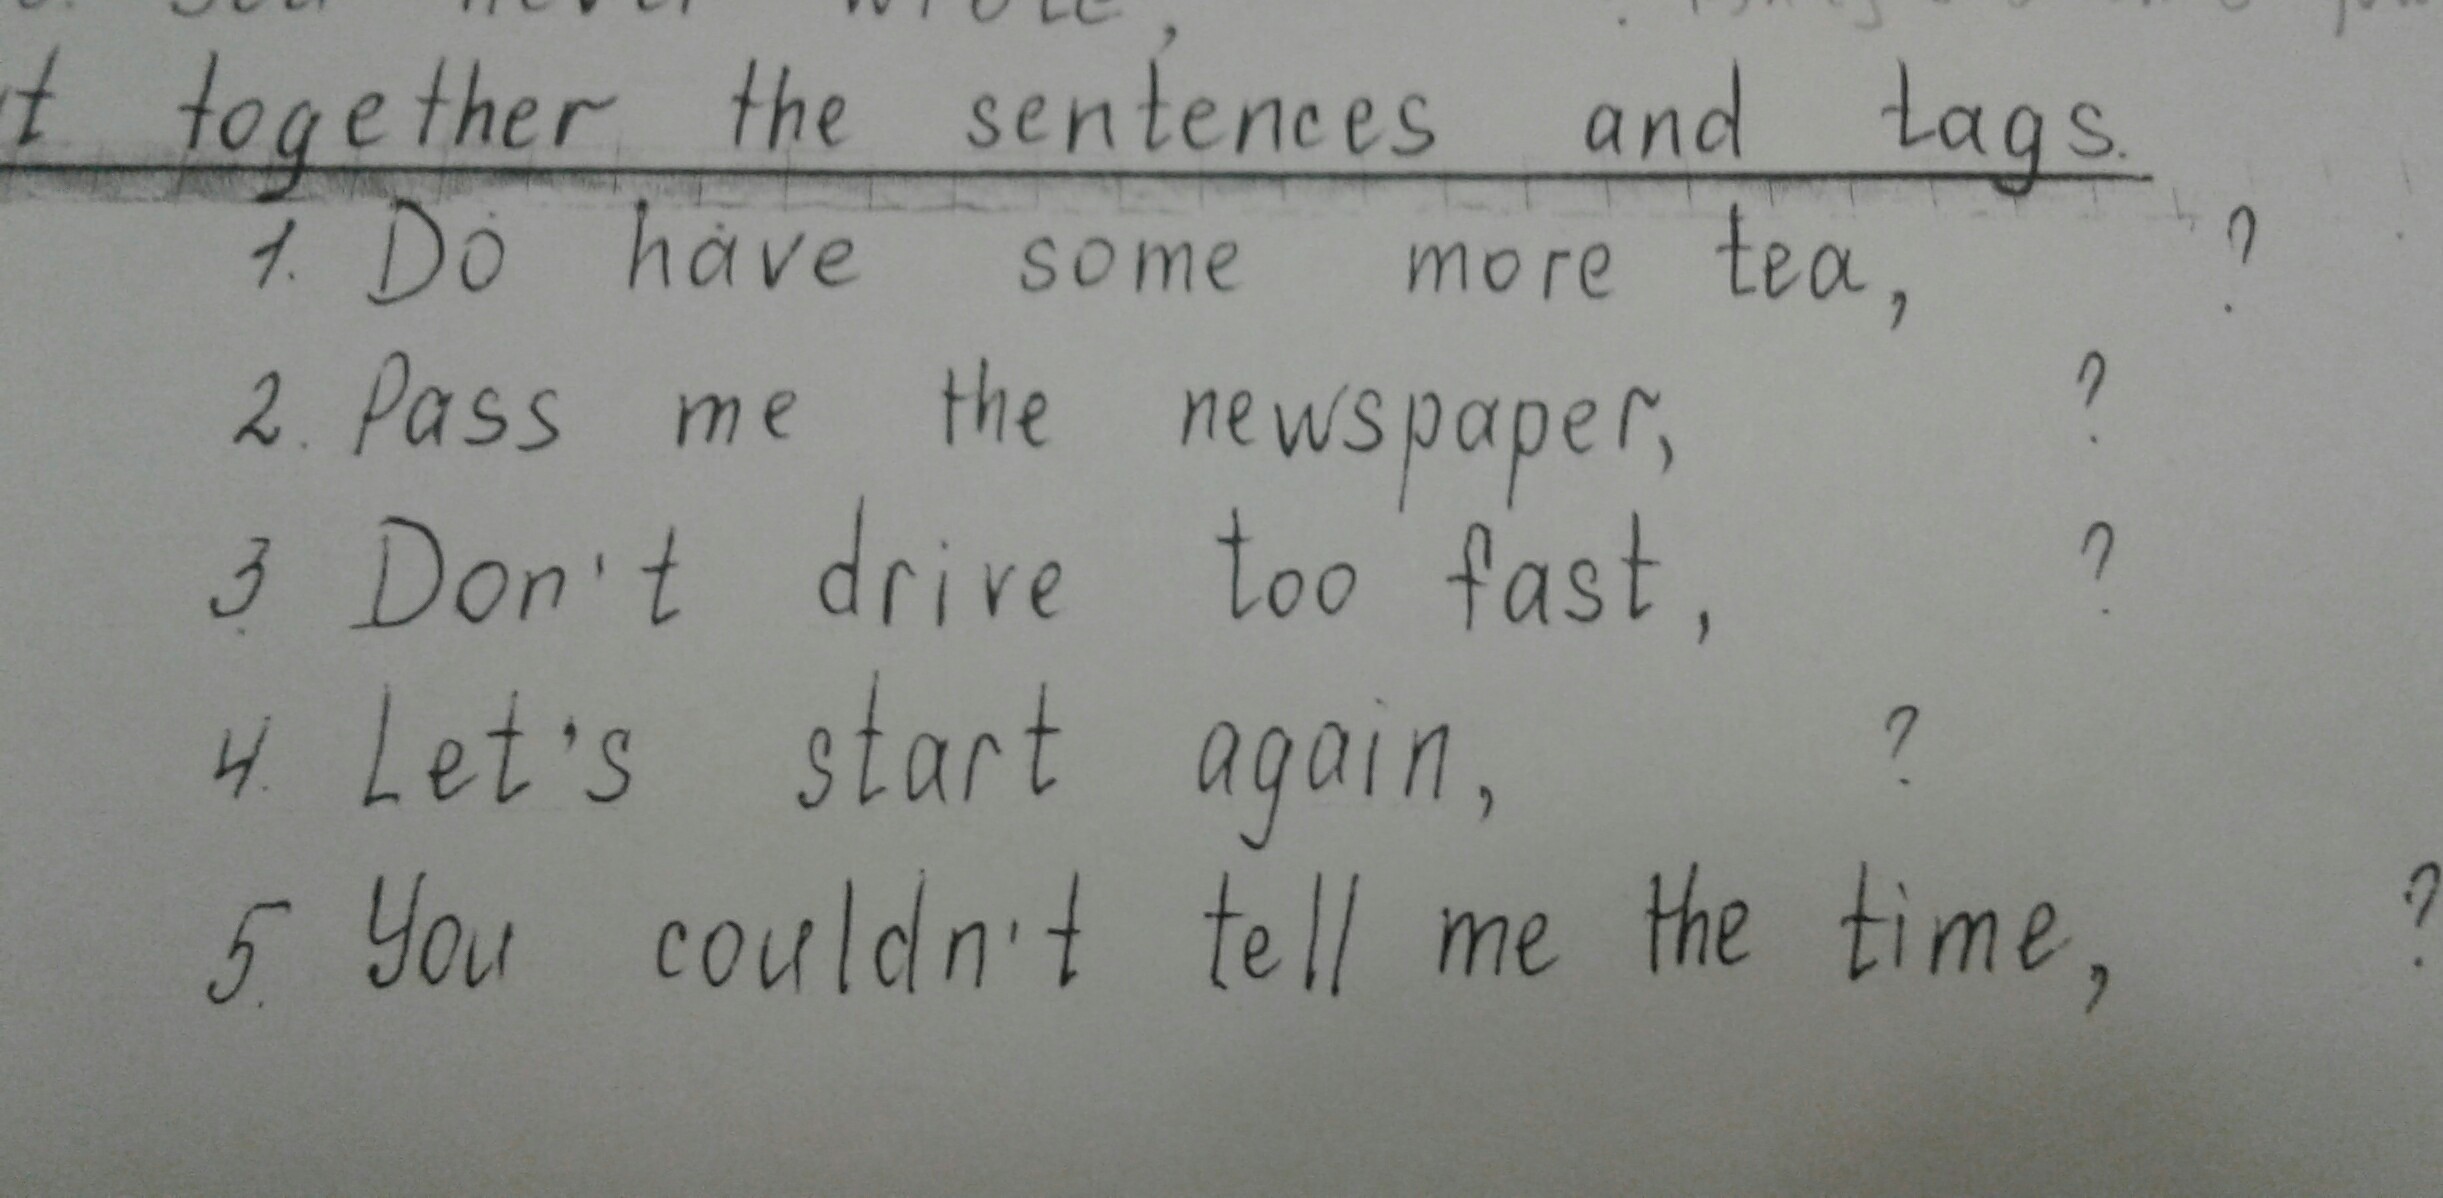 You never wrote,
t together the sentences and tags.
1. Do have some more tea, ?
2. Pass me the newspaper, ?
3. Don't drive too fast, ?
4. Let's start again, ?
5. You couldn't tell me the time, ?